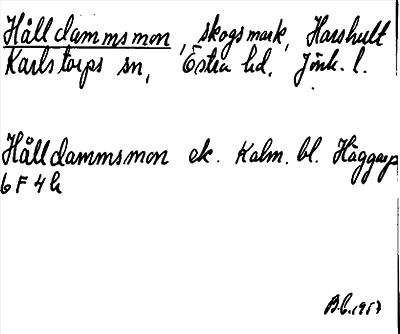 Hålldammsmon, skogsmark, Harshult
Karlstorps sn, Östra hd. Jönk. l.
Hålldammsmon ek. Kalm. bl. Häggarp
6 F 4 h